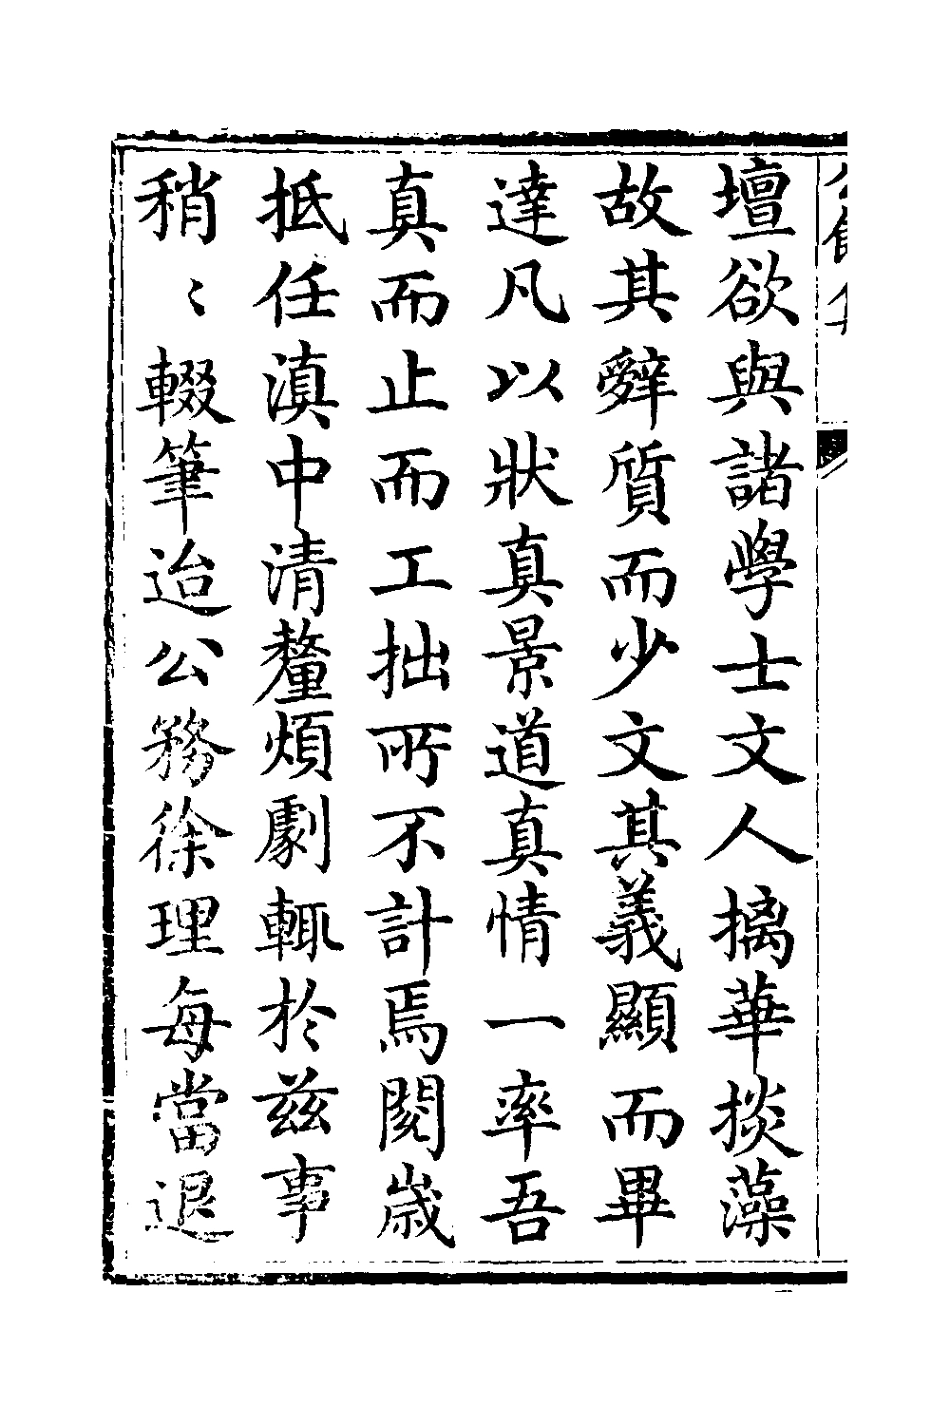 壇欲與諸學士文人摛華掞藻
故其辭質而少文其義顯而畢
達凡以狀真景道真情一率吾
真而止而工拙所不計焉閱歲
抵任滇中清釐煩劇輒於兹事
稍〻輟筆迨公務徐理每當退